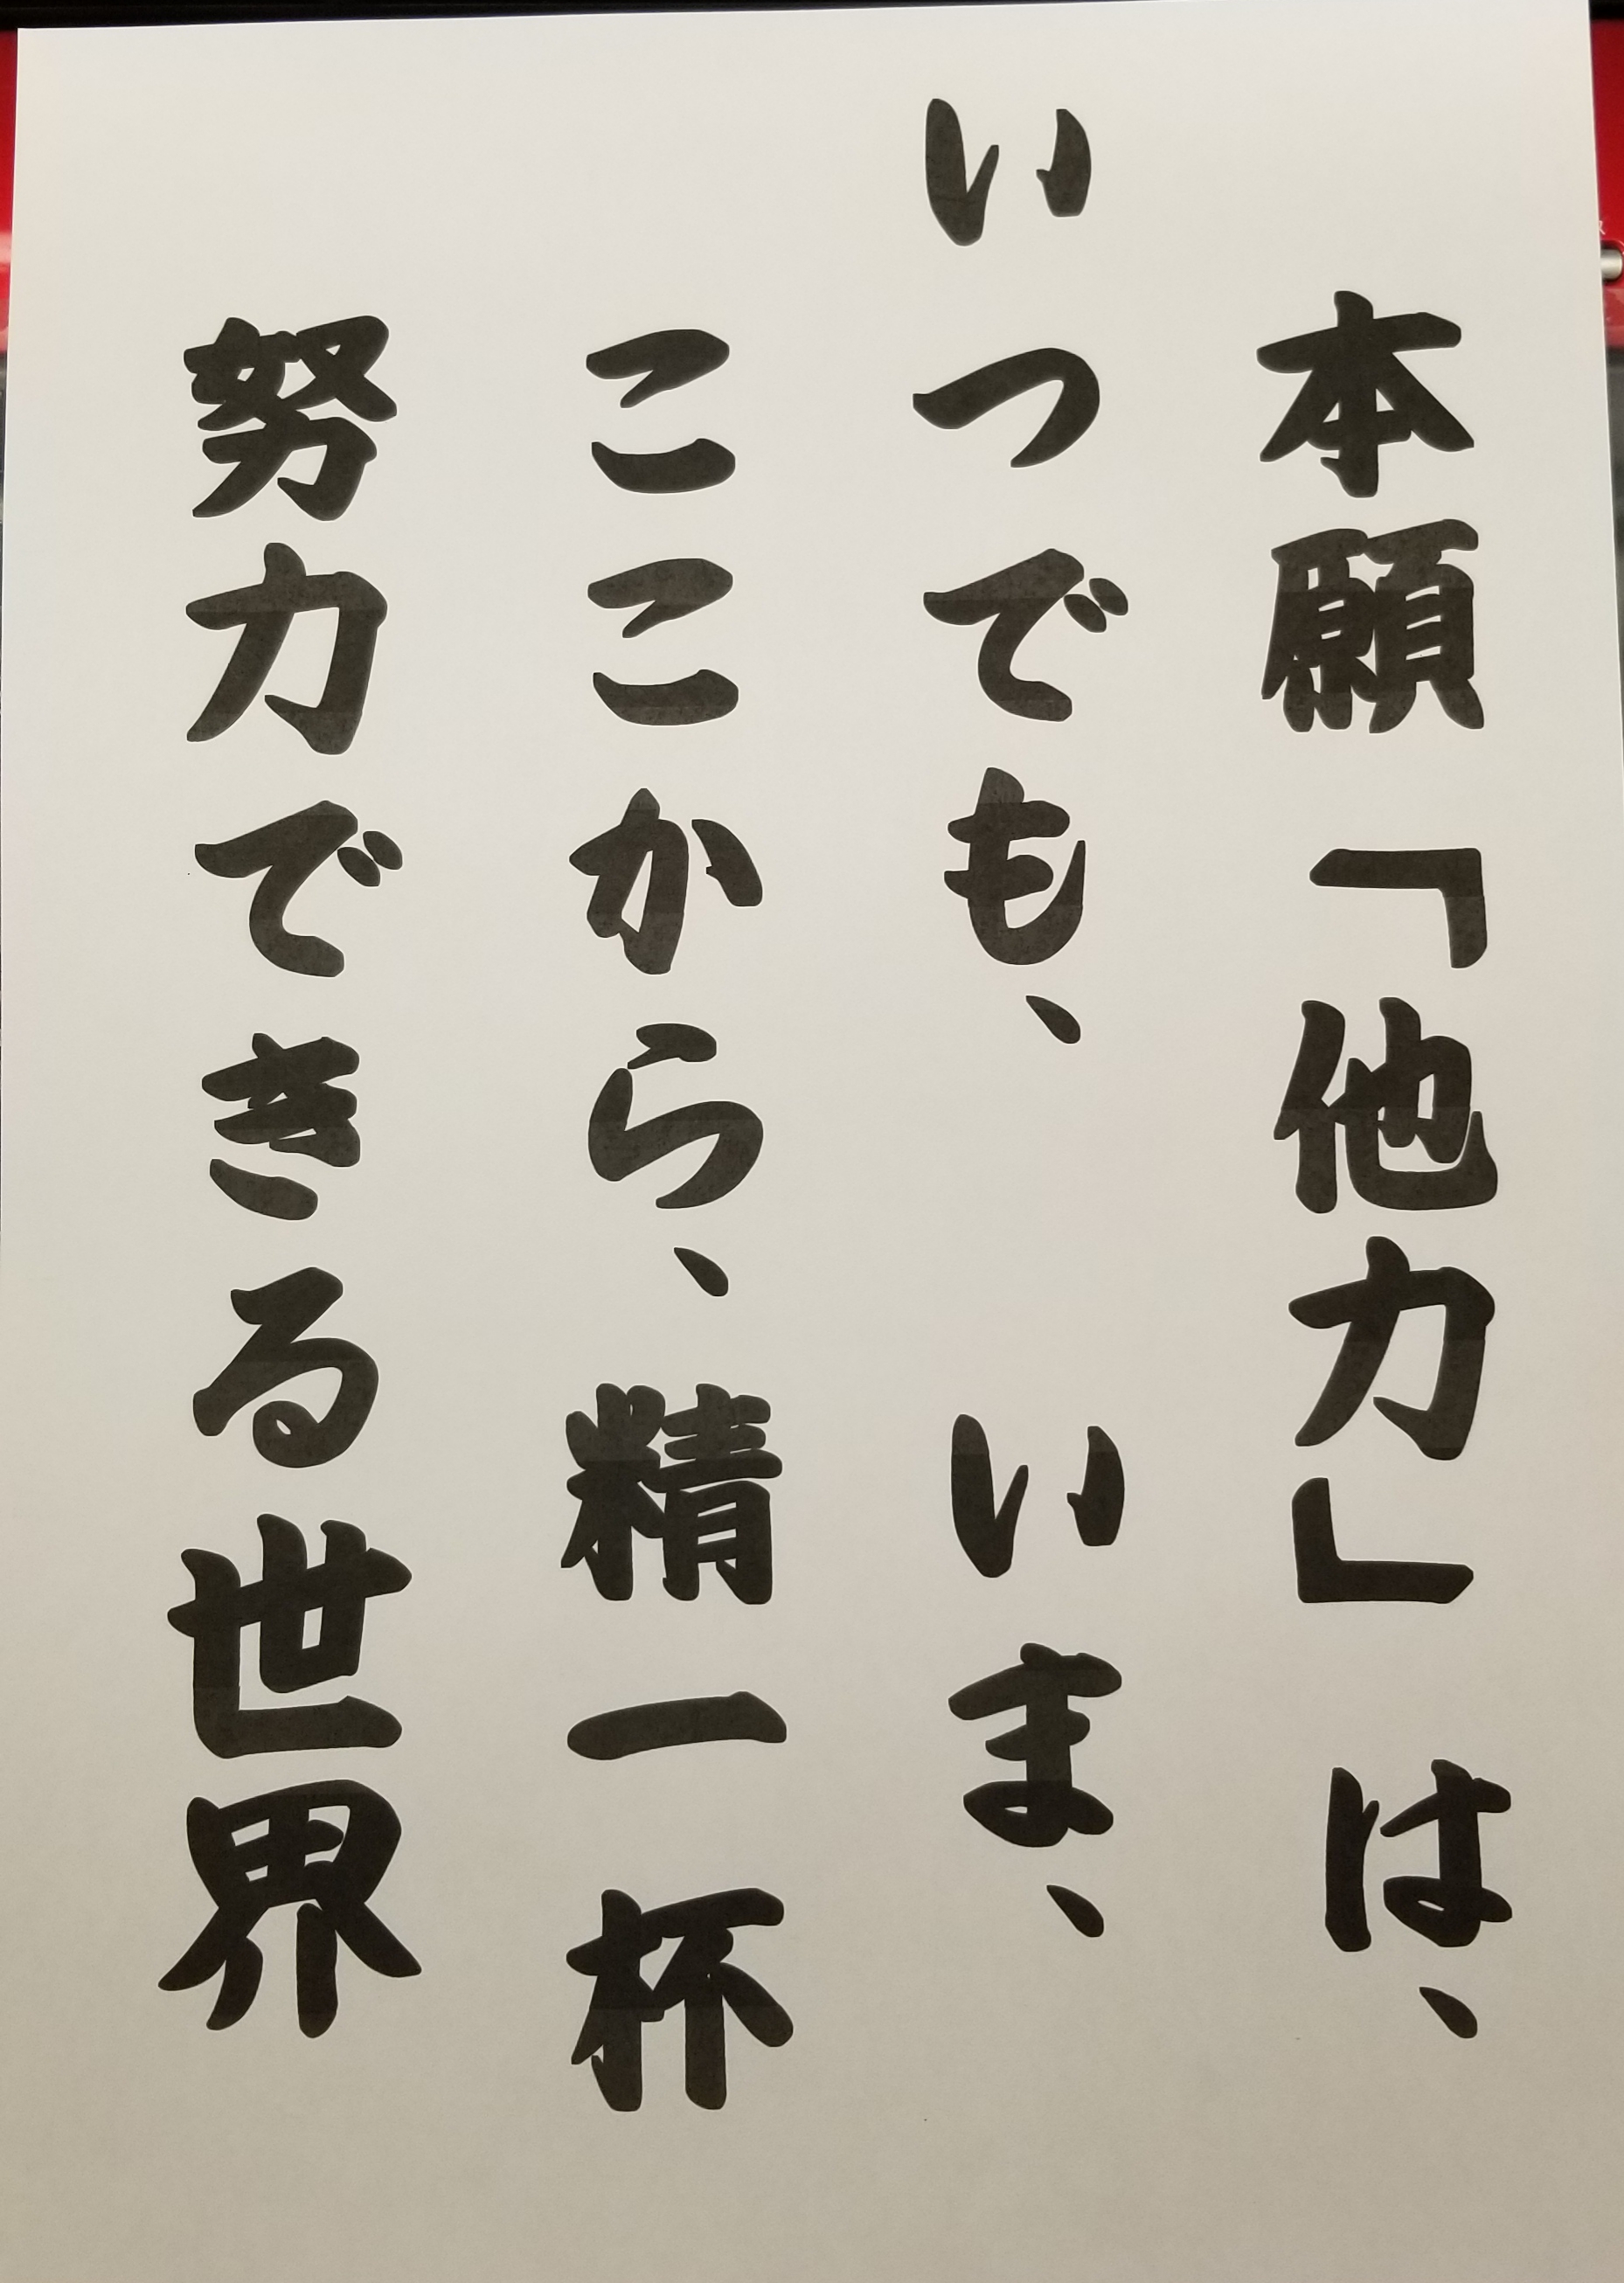 本願「他力」は、
いつでも、　いま、
ここから、精一杯
努力できる世界